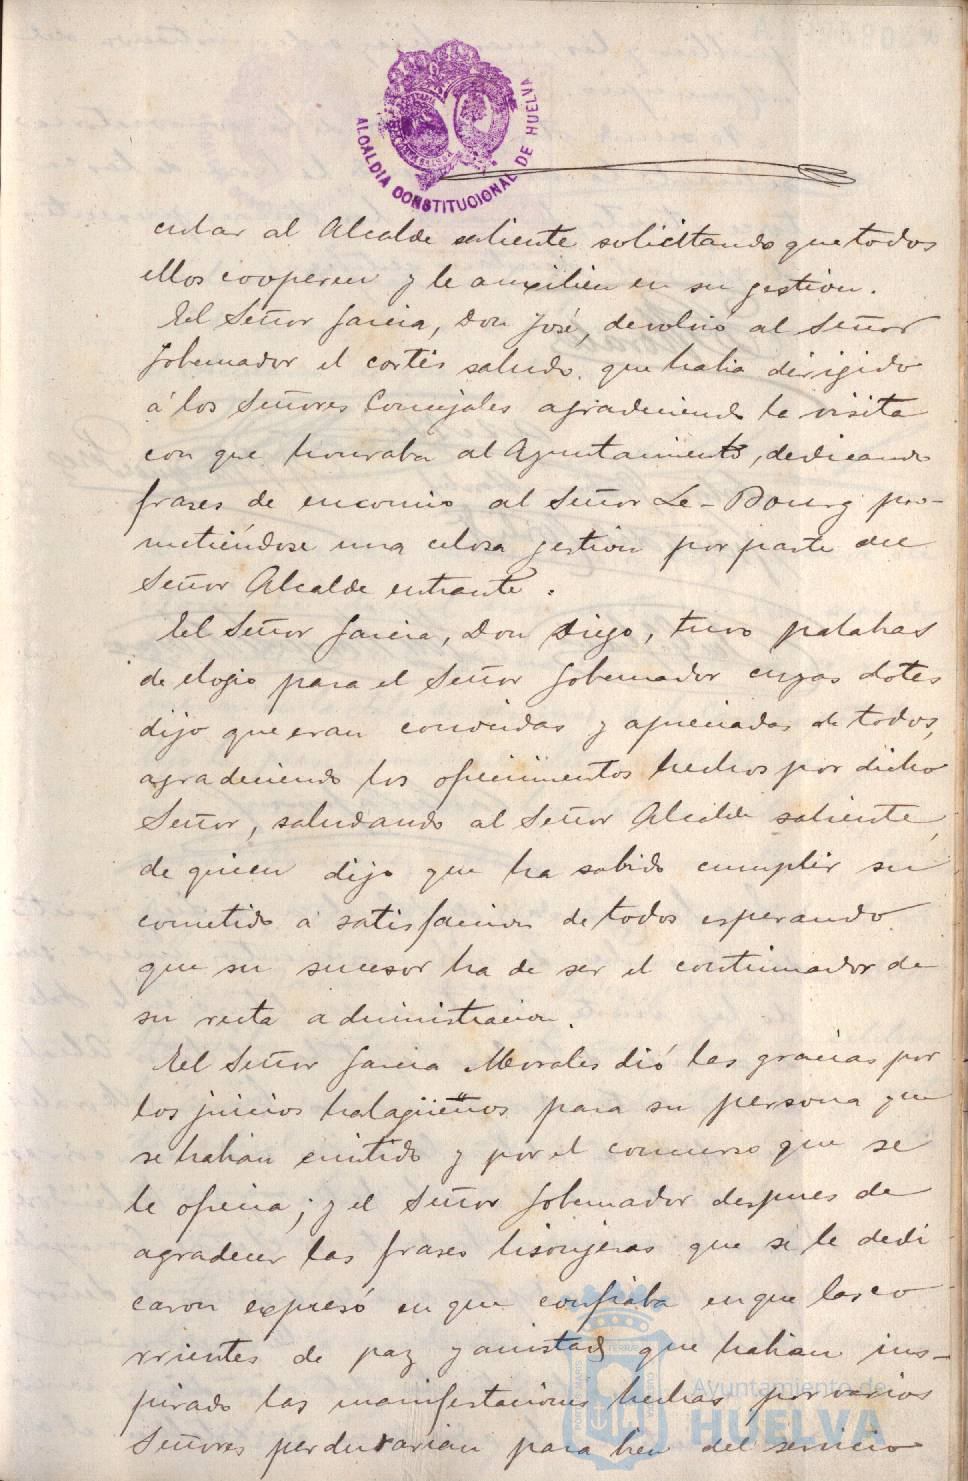 ALCALDIA CONSTITUCIONAL DE HUELVA
cular al Alcalde saliente solicitando que todos
ellos cooperen y le auxilien en su gestion.
El Señor Garcia, Don José, devolvió al Señor
Gobernador el cortés saludo que habia dirigido
á los Señores Concejales agradeciendo la visita
con que honraba al Ayuntamiento, dedicando
frases de encomio al Señor Le-Bourg pro-
metiéndose una celosa gestion por parte del
Señor Alcalde entrante.
El Señor Garcia, Don Diego, tuvo palabras
de elogio para el Señor Gobernador cuyas dotes
dijo que eran conocidas y apreciadas de todos,
agradeciendo los ofrecimientos hechos por dicho
Señor, saludando al Señor Alcalde saliente,
de quien dijo que ha sabido cumplir su
cometido á satisfacion de todos esperando
que su sucesor ha de ser el continuador de
su recta administracion.
El Señor Garcia Morales dió las gracias por
los juicios halagüeños para su persona que
se habian emitido y por el concurso que se
le ofrecia; y el Señor Gobernador despues de
agradecer las frases lisonjeras que se le dedi
caron expresó en que confiaba en que las co
rrientes de paz y amistad que habian ins-
pirado las manifestaciones hechas por varios
Señores perdurarian para bien del servicio
Ayuntamiento de
HUELVA